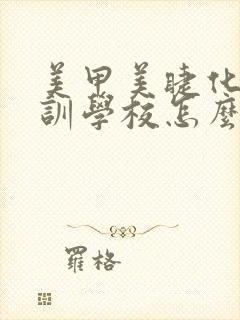 美甲美睫化
訓學校怎麼
羅格